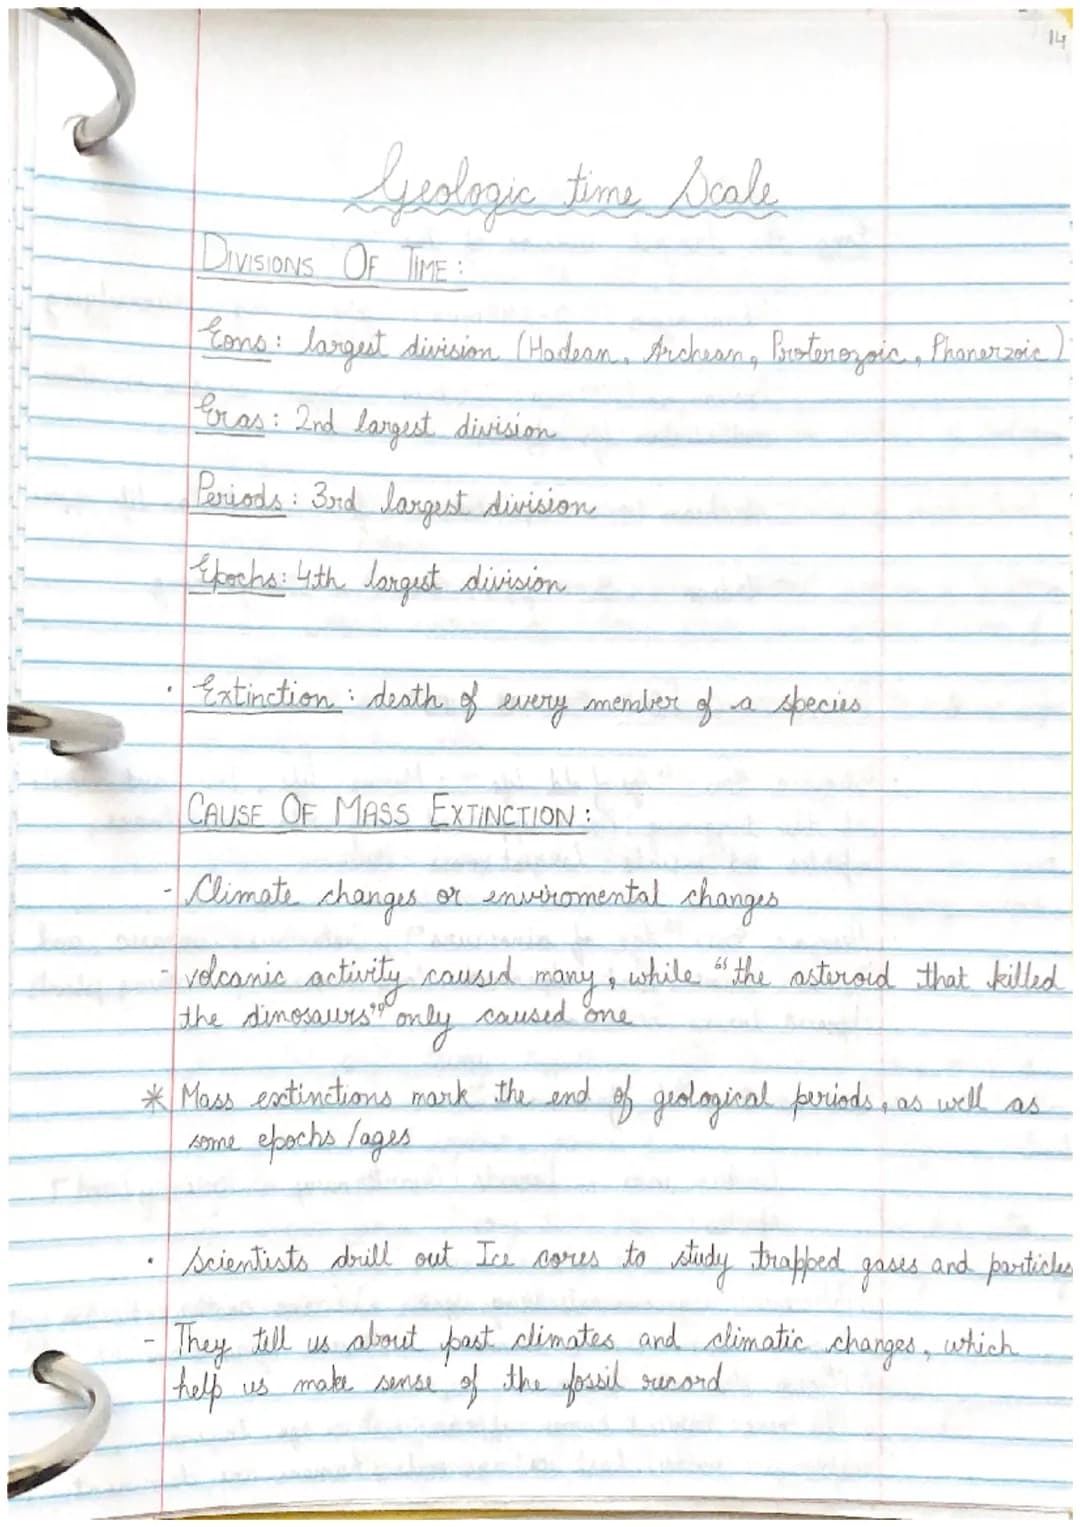 14
Geologic time Scale
DIVISIONS OF TIME:
Eons: largest division (Hadean, Archean, Proterozoic, Phanerzoic)
Eras: 2nd largest division
Periods: 3rd largest division
Epochs: 4th largest division
· Extinction: death of every member of a species
CAUSE OF MASS EXTINCTION:
- Climate changes or enviromental changes
- volcanic activity caused many, while "the asteroid that killed
the dinosaurs" only caused one
* Mass extinctions mark the end of geological periods, as well as
some epochs/ages
· Scientists drill out Ice cores to study trapped gases and particles
- They tell us about past climates and climatic changes, which
help us make sense of the fossil record